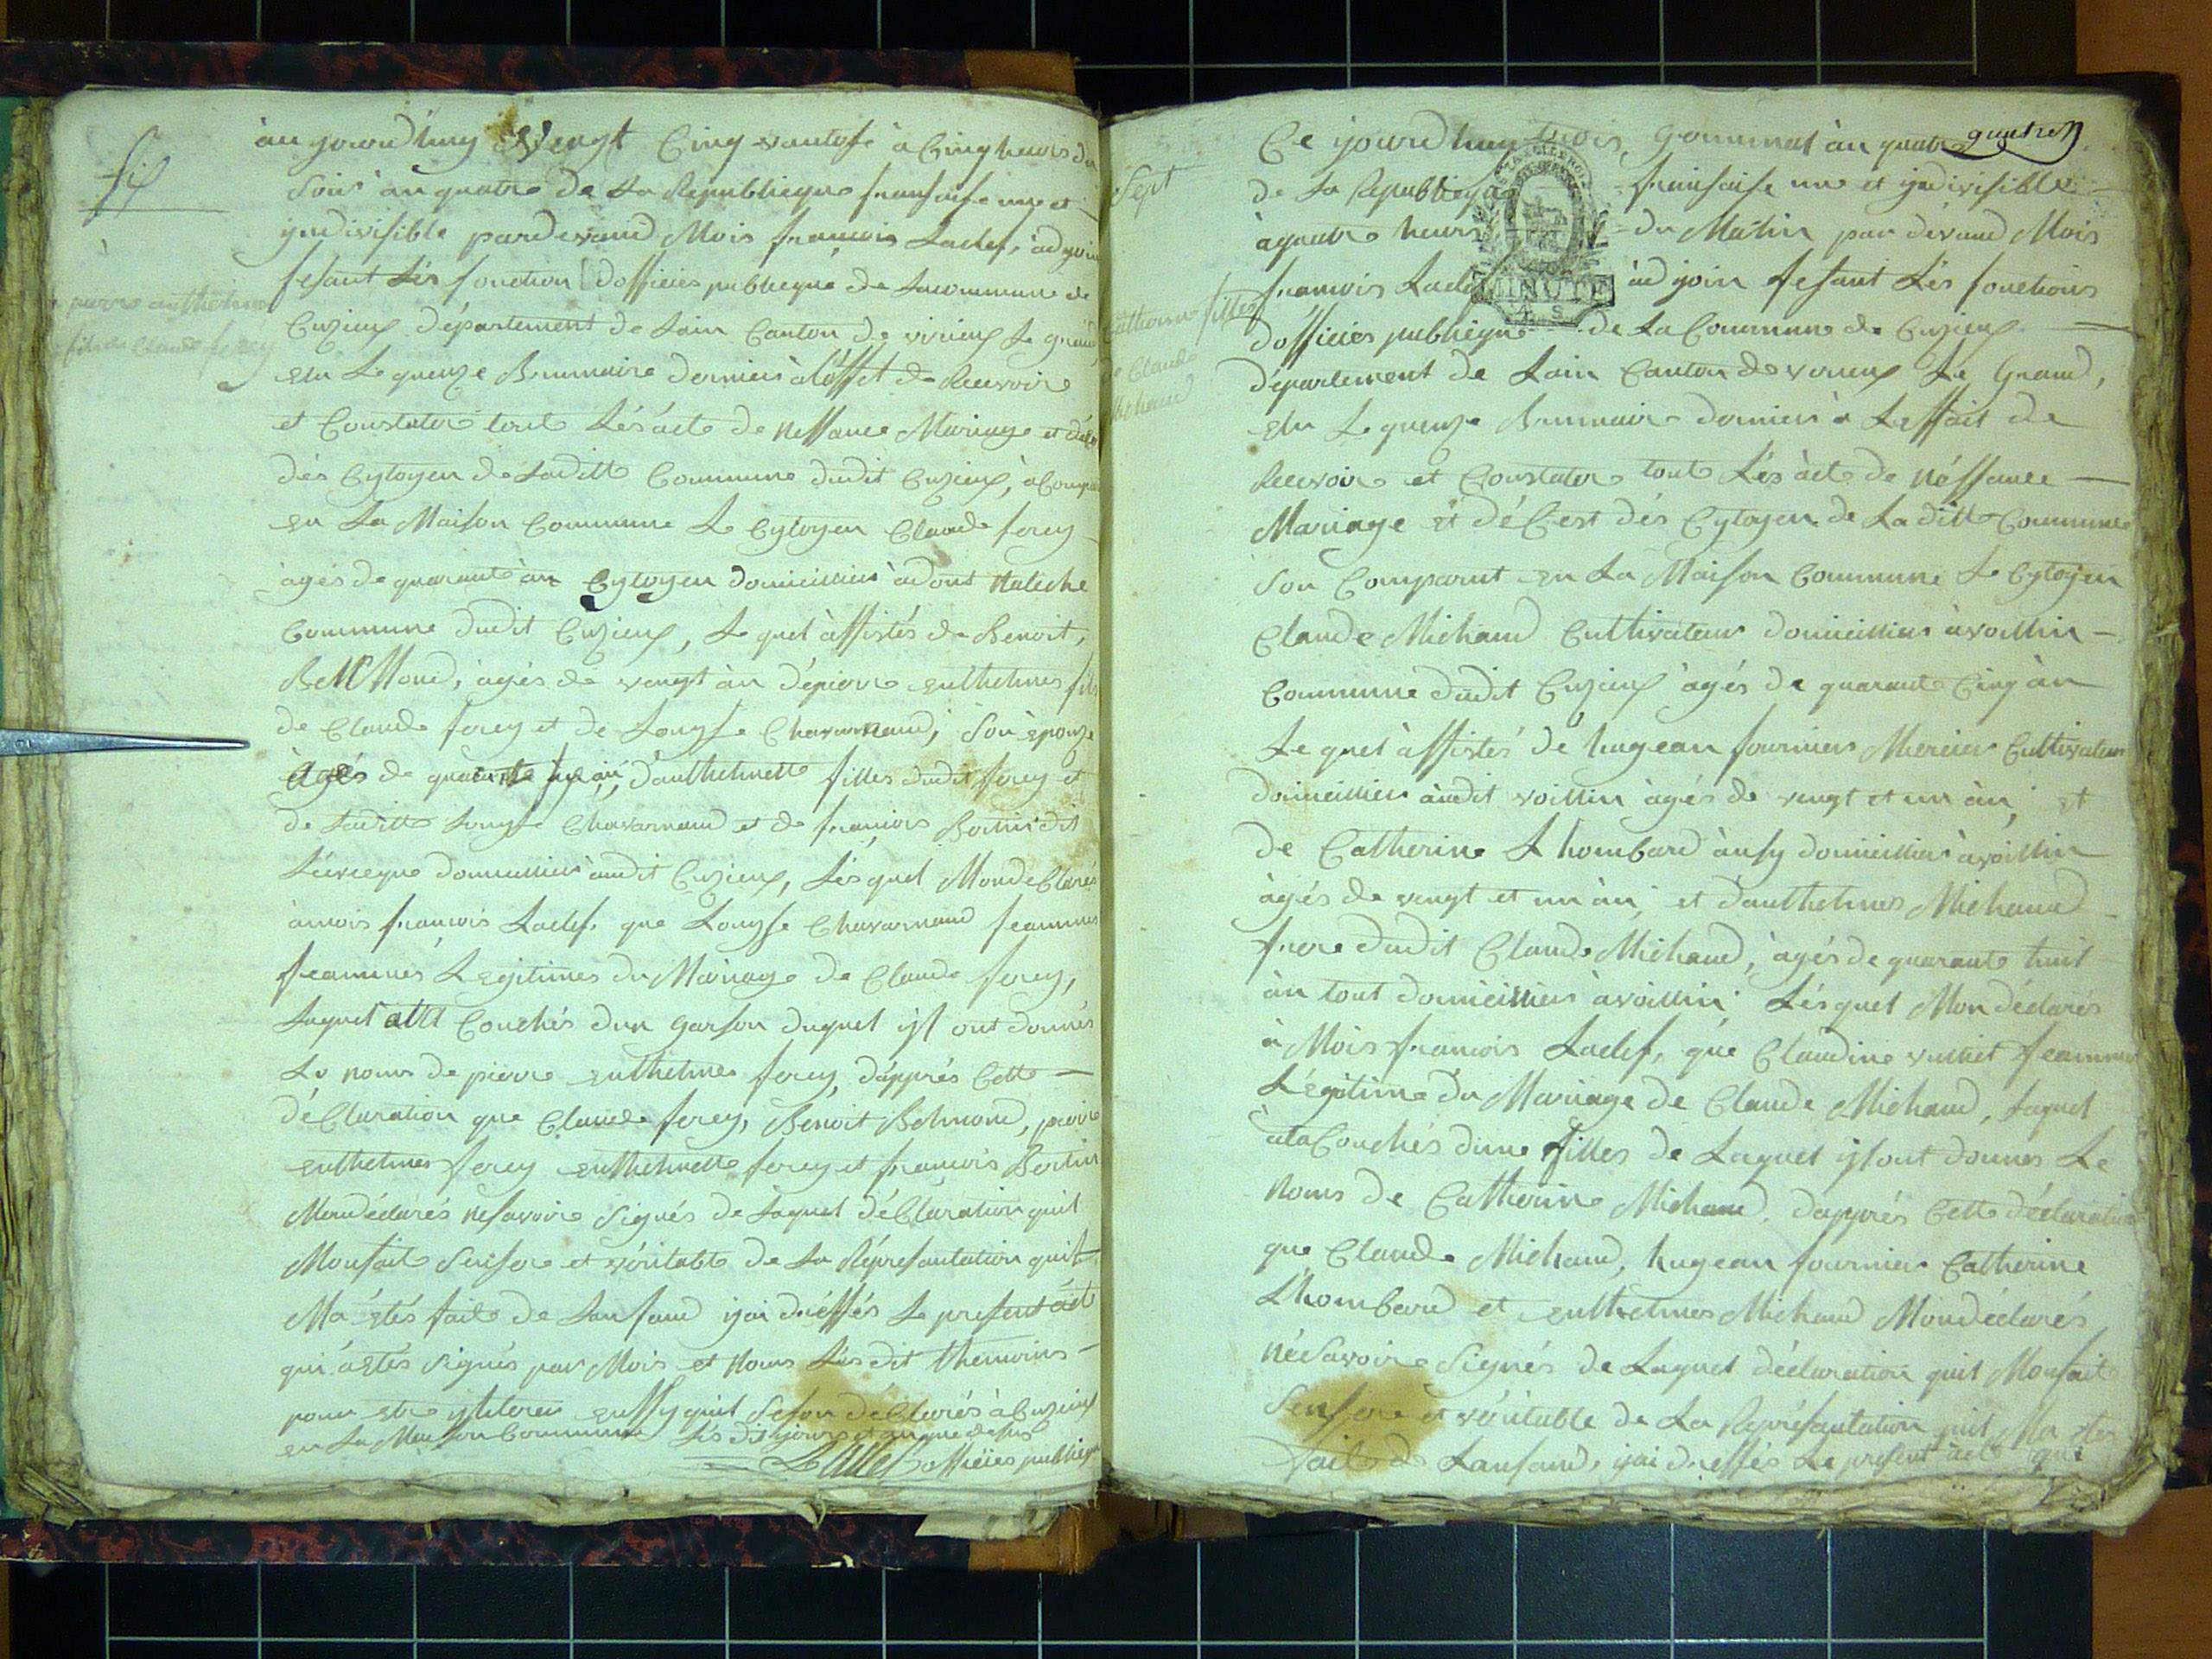 six
pierre anthelme
fils de Claude ferey
àu jourdhuy Vengt Cinq vantose à Cinq heures du
soir àn quatre de La Republieque franfaise une et
yndivisible pardevand Mois francois Laclef, àdjoin
fesant Lés fonction dofficiés publieque de Lacommune de
Cuzieux département de Lain Canton de virieux Le grand
elu Le quenze Brumaire dernier à léffet de Recevoire
et Constater tout Lés àcte de nessance Mariage et
dés Cytoyen de Laditte Commune dudit Cuzieux, à Compa
en La Maison Commune Le Cytoyen Claude ferey
àgés de quarante àn Cytoyen domicillier à
Commune dudit Cuzieux, Le quel àssistés de Benoit,
BellMond, àgés de vengt àn dépierre enthelmes fils
de Claude ferey et de Louyse Chavarnaud, son épouze
àgés de quarante àn, danthelmette filles dudit ferey et
de Laditte Louyse Chavarnaud et de francois Bertin dit
Léveque domicillier àudit Cuzieux, Lésquel Mondeclarés
àmois francois Laclef, que Louyse Chavarnaud feammes
feammes Legitimes du Màriage de Claude ferey,
Laquel Couchés dun garson duquel ysl ont donnés
Le noms de pierre enthelmes ferey, dapprés Cette
déClaration que Claude ferey, Benoit Belmond, pierre
enthelmes ferey enthelmette ferey et francois Bertin
Mondéclarés nesavoire signés de Laquel déClaration quil
Monfait sensere et véritable de La Réprésantation quil
Ma étés faite de Lanfand yjai dréssés Le present àct
qui àétés signés par Mois et nons Lés dit themoins
pour etre yllterés enssy quil seson déClarés à Cuzieux
en La Maison Commune Lés dit jours et an que dessus
Laclef officiés publieque
sept
Catherine filles
de Claude
Michaud
Ce jourdhuy trois, germinal àn quatre
de La Republieque franfaise une et yndivisible
àquatre heures du Matin par dévand Mois
francois Laclef àdjoin fesant Lés fonctions
MINUTE
dofficiés publieque de La Commune de Cuzieux
département de Lain Canton de virieux Le Grand,
elu Le quenze Brumaire dernier à Leffait de
Recevoir et Constater tout Lés àcte de néssance
Mariage et déCest dés Cytoyen de Laditte Commune
Son Comparut en La Maison Commune Le Cytoyen
Claude Michaud Cultivateur domicillier àvoillin
Commune dudit Cuzieux àgés de quarante Cinq àn
Le quel àssistés de hugean fournier Mercier Cultivateur
domicillier àudit voillin àgés de vengt et un àn, et
de Catherine Lhombard àusy domicillier àvoillin
àgés de vengt et un àn, et danthelmes Michaud
frere dudit Claude Michaud, àgés de quarante huit
àn tout domicillier àvoillin Lésquel Mon déclarés
à Mois francois Laclef, que Claudine feammes
Légitime du Mariage de Claude Michaud, Laquel
àtaCouchés dune filles de Laquel ysl ont donnés Le
noms de Catherine Michaud dapprés Cette déclaration
que Claude Michaud, hugean fournier Catherine
Lhombard et enthelmes Michaud Mondéclarés
nésavoire signés de Laquel déclaration quil Monfait
sensere et véritable de La Représantation quil Ma etes
faite de Lanfand, yjai dréssés Le présent àct qui